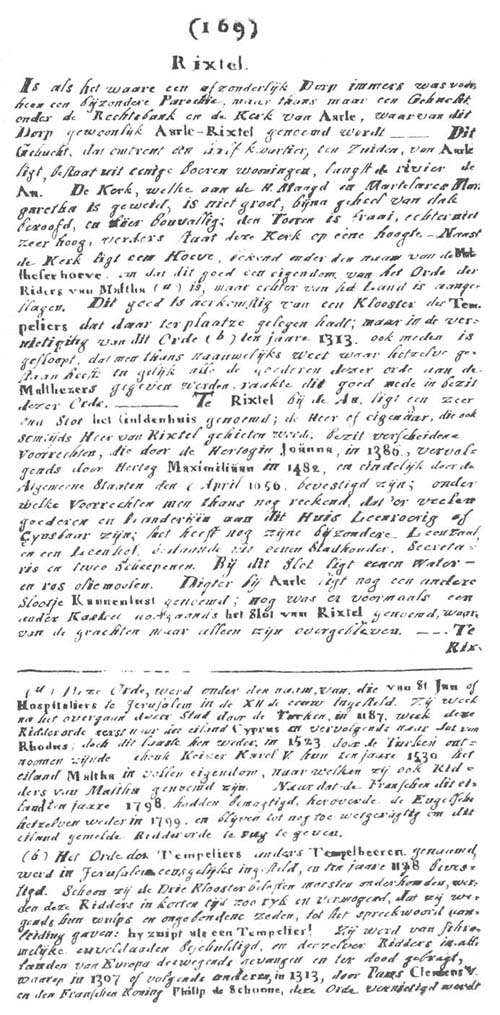 (169)
Rixtel.
Is als het waare een afzonderlijk Dorp immers was voor
heen een bijzondere Parochie, maar thans maar een Gehucht
onder de Rechtebank en de Kerk van Aarle, waar van dit
Dorp gewoonlijk Aarle-Rixtel genoemd wordt —— Dit
Gehucht, dat omtrent een kwartier, ten Zuiden, van Aarle
ligt, bestaat uit eenige boeren woningen, langst de rivier de
Aa. De Kerk, welke aan de H. Maagd en Martelares Mar
garetha is geweid, is niet groot, bijna geheel van dak
beroofd, en zeer bouvallig; den Toren is fraai, echter niet
zeer hoog, verders staat deze Kerk op eene hoogte — Naast
de Kerk ligt een Hoeve, bekend onder den naam van de Mal
theserhoeve, om dat dit goed een eigendom van het Orde der
Riders van Maltha (a) is, maar echter van het Land is aange-
slagen. Dit goed is herkomstig van een Klooster der Tem
peliers dat daar ter plaatze gelegen hadt; maar in de ver-
nietiging van dit Orde (b) ten jaare 1313. ook meden is
gesloopt, dat men thans naauwelijks weet waar hetzelve ge-
staan heeft en gelijk alle de goederen dezer orde aan de
Malthezers gegeven werden, raakte dit goed mede in bezit
dezer Orde. —— Te Rixtel bij de Aa, ligt een zeer
oud Slot het Guldenhuis genoemd; de Heer of eigenaar, die ook
somwijds Heer van Rixtel geheeten werdt, bezit verscheidene
Voorrechten, die door de Hertogin Joanna, in 1386, vervol-
gends door Hertog Maximiliaan in 1482, en eindelijk door de
Algemeene Staaten den April 1656, bevestigd zijn; onder
welke Voorrechten men thans nog reekend, dat 'er veelen
goederen en Landerijen aan dit Huis Leenroerig of
Cynsbaar zijn; het heeft nog zijne bijzondere Leenzaal,
en een Leenhof, bestaande uit eenen Stadhouder, Secreta-
ris en twee Scheepenen. Bij dit Slot ligt eenen Water—
en ros oliemolen. Digter bij Aarle ligt nog een andere
Slootje Kannenlust genoemd; nog was er voormaals een
ander Kasteel het Slot van Rixtel genoemd, waar
van de grachten maar alleen zijn overgebleven. —— Te
Rix-
(a) Deze Orde, werd onder den naam, van, die van St Jan of
Hospitaliers te Jerusalem in de XII de eeuw ingesteld. Zij week
na het overgaan dezer Stad door de Turken, in 1187, week deze
Ridderorde eerst naar het eiland Cyprus en vervolgende naar dat van
Rhodus; doch dit laatste hen weder, in 1523 door de Turken ont-
noomen zijnde schonk Keizer Karel V. hun ten jaare 1530 het
eiland Maltha in vollen eigendom, naar welken zij ook Rid-
ders van Maltha genoemd zijn. Naar dat de Franschen dit ei-
land ten jaare 1798. hadden bemagtigd, heroverde de Engelsche
hetzelven weder in 1799. en blijven tot nog toe weigeragtig om dit
eiland gemelde Ridderorde te rug te geven.
(b) Het Orde der Tempeliers anders Tempelheeren genaamd,
werd in Jerusalem eensgelijks ingesteld, en ten jaare 1128 beves-
tigd. Schoon zij de Drie Kloosterbeloften moesten onderhouden, wer-
den deze Ridders in korten tijd zoo ryk en vermogend, dat zij ver-
gends hun wulps en ongebondene zeden, tot het spreekwoord aan-
leiding gaven: hy zuipt als een Tempelier! Zij werd van schro-
melijke euveldaaden beschuldigd, en derzelver Ridders in alle
landen van Europa deswegends gevangen en ter dood gebragt,
waarop in 1307 of volgende anderen, in 1313, door Paus Clemens V.
en den Franschen Koning Philip de Schoone, deze Orde vernietigd wordt